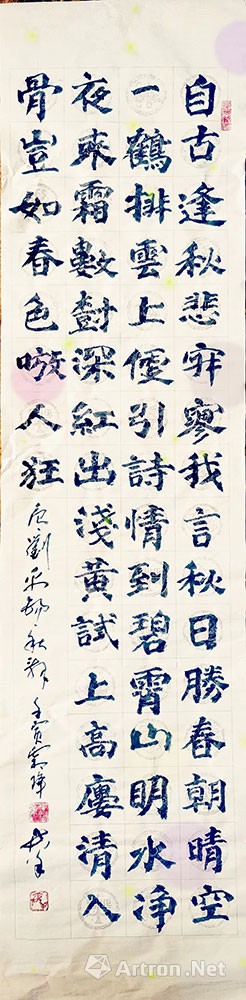 自古逢秋悲寂寥我言秋日勝春朝晴空
一鶴排雲上便引詩情到碧霄山明水淨
夜來霜數樹深紅出淺黃試上高廔清入
骨豈如春色嗾人狂
唐劉禹錫秋詞 壬寅
Artron.Net
雅昌艺术网